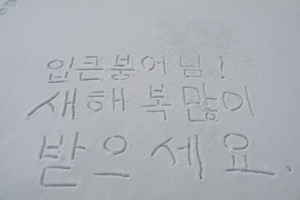 입큰붕어님!
새해 복 많이
받으세요.